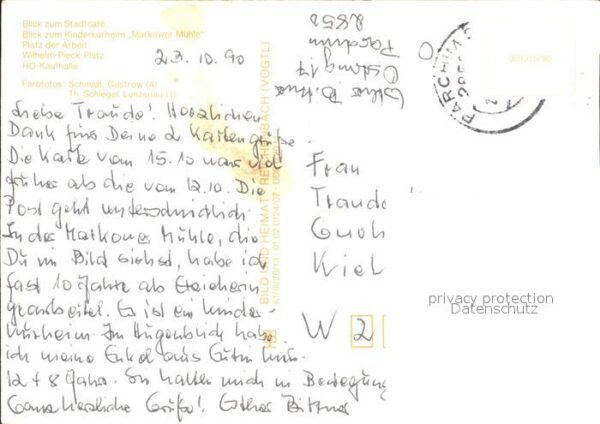 Blick zum Stadtcafé
Blick zum Kinderkurheim „Markower Mühle"
Platz der Arbeit
Wilhelm-Pieck-Platz
HO-Kaufhalle
Farbfotos: Schmidt, Güstrow (4)
Th. Schlegel, Lunzenau (1)
23.10.90
Liebe Traude! Herzlichen
Dank für Deine 2 Kartengrüße
Die Karte vom 15.10 war viel
früher als die vom 12.10. Die
Post geht unterschiedlich.
In der Markower Mühle, die
Du im Bild siehst, habe ich
fast 10 Jahre als Erzieherin
gearbeitet. Es ist ein Kinder-
kurheim. Im Augenblick habe
ich meine Enkel aus hier.
12 + 8 Jahre. Sie halten mich in Bewegung
Ganz herzliche Grüße! Esther Bittner
BILD UND HEIMAT REICHENBACH (VOGTL)
Esther Bittner
17
Parchim
2850
PARCHIM
001315/90
Frau
Traude
Kiel
W 2
privacy protection
Datenschutz